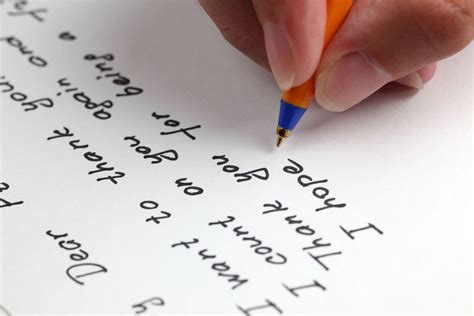 y Dear
I want to thank you
I count on you again and
Thank you for being a
I hope